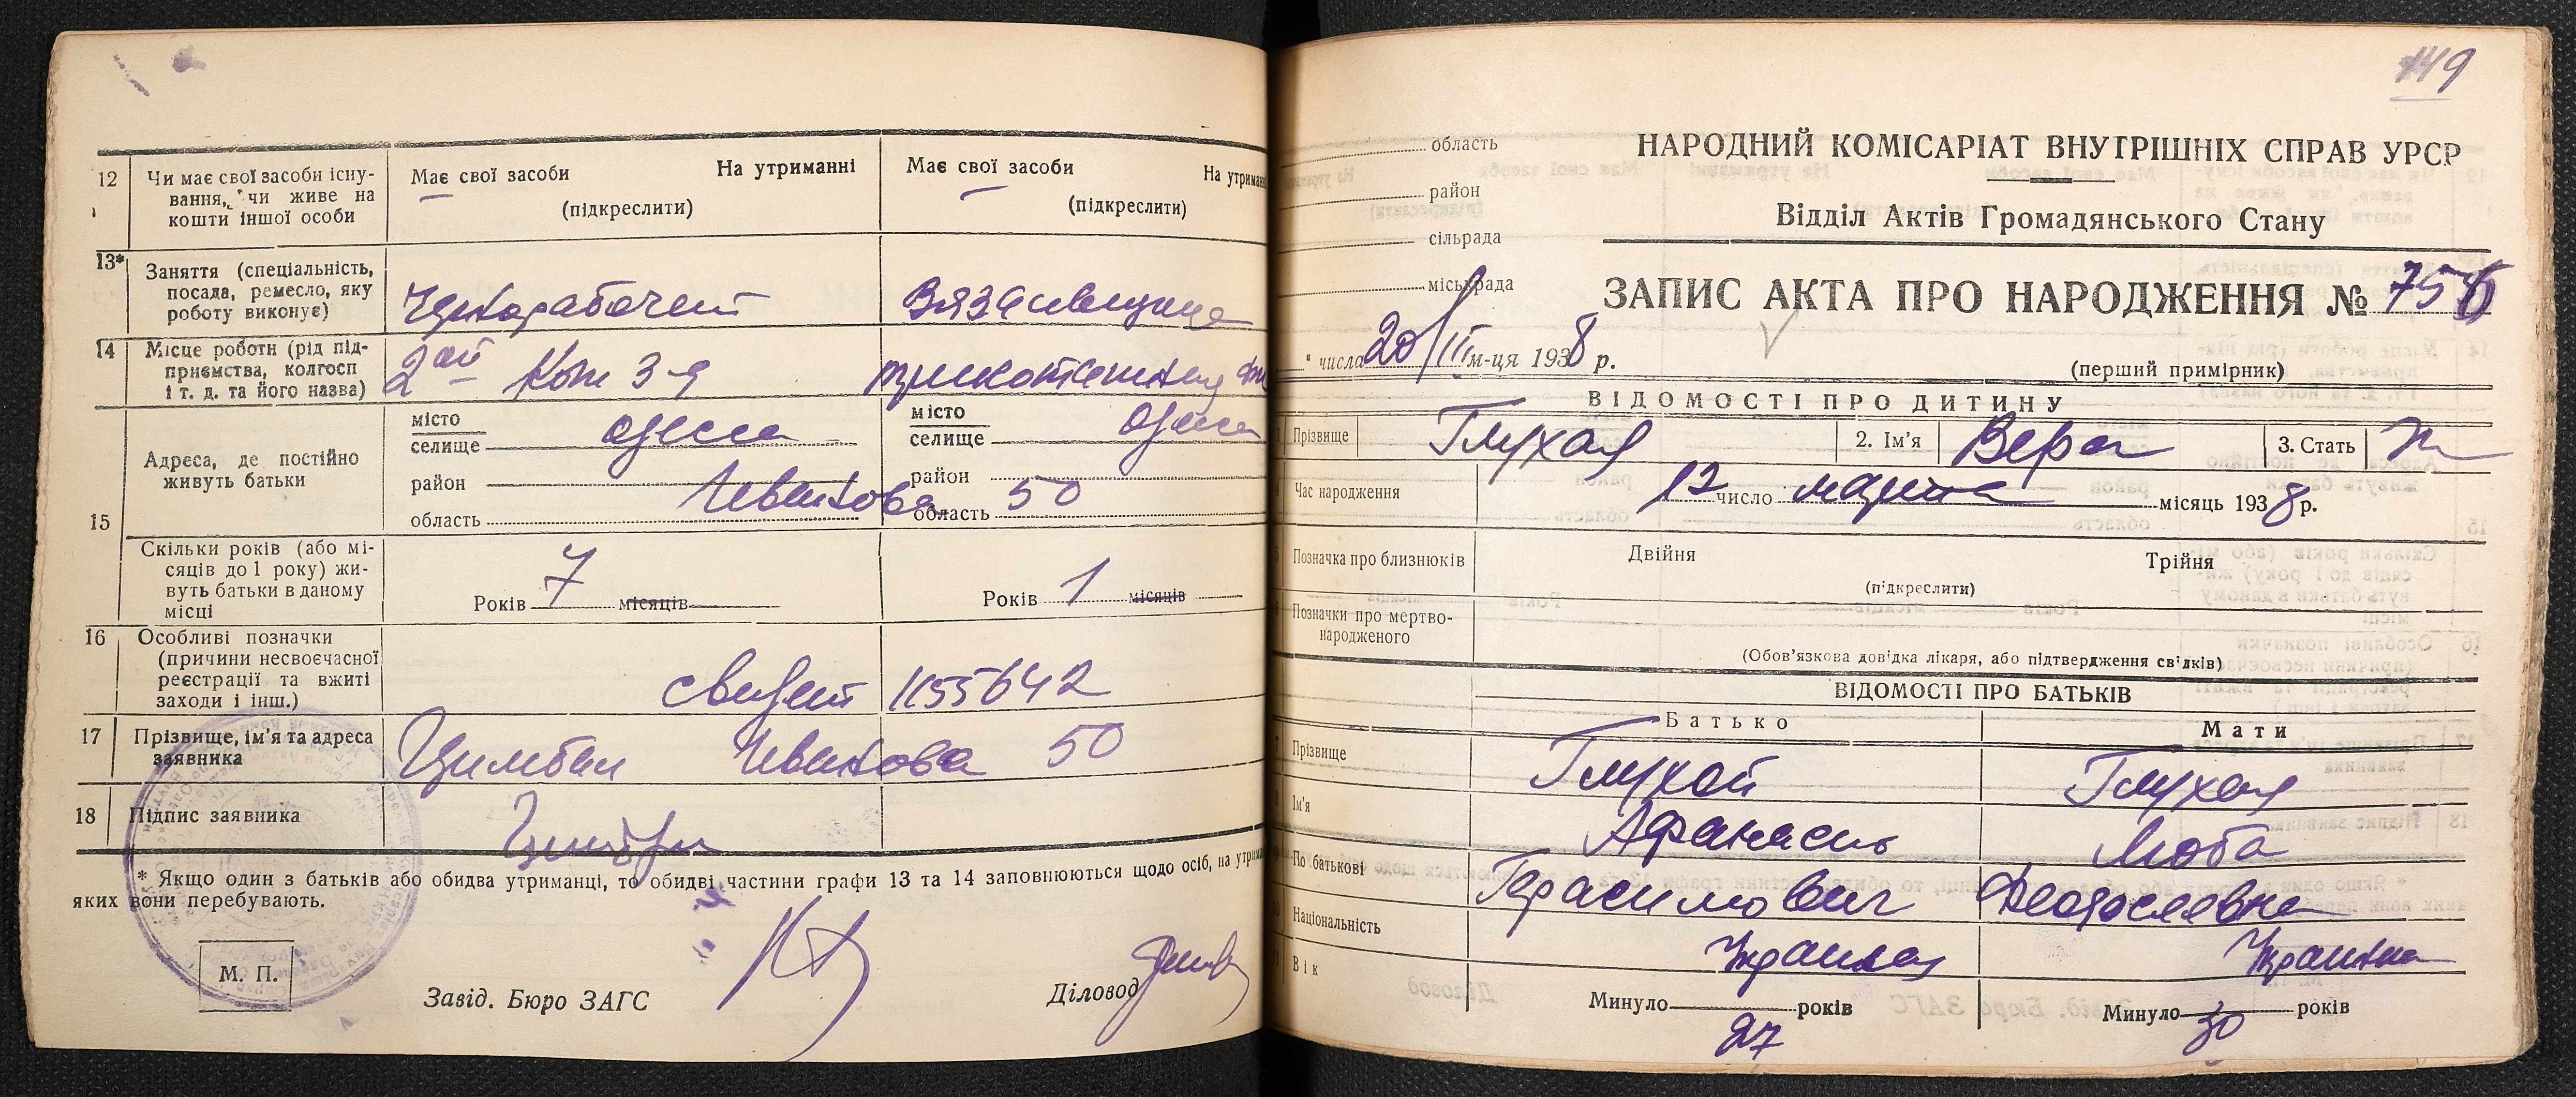 12
Чи має свої засоби існу-
вання, чи живе на
кошти іншої особи
Має свої засоби На утриманні
(підкреслити)
Має свої засоби На утриман
(підкреслити)
13*
Заняття (спеціальність,
посада, ремесло, яку
роботу виконує)
Чернорабочий
14
Місце роботи (рід під-
приємства, колгосп
і т. д. та його назва)
2ой
15
Адреса, де постійно
живуть батьки
місто
селище Одесса
район
область
місто
селище Одесса
район
область 50
Скільки років (або мі-
сяців до 1 року) жи-
вуть батьки в даному
місці
Років 7 місяців
Років 1 місяців
16
Особливі позначки
(причини несвоєчасної
реєстрації та вжиті
заходи і інш.)
1155642
17
Прізвище, ім'я та адреса
заявника
Цимбал 50
18
Підпис заявника
* Якщо один з батьків або обидва утриманці, то обидві частини графи 13 та 14 заповнюються щодо осіб, на утрима
яких вони перебувають.
М. П.
Завід. Бюро ЗАГС
Діловод
149
область
район
сільрада
міськрада
НАРОДНИЙ КОМІСАРІАТ ВНУТРІШНІХ СПРАВ УРСР
Відділ Актів Громадянського Стану
ЗАПИС АКТА ПРО НАРОДЖЕННЯ № 756
" числа 20/III м-ця 1938 р.
(перший примірник)
ВІДОМОСТІ ПРО ДИТИНУ
Прізвище Глухая 2. Ім'я Вера 3. Стать ж
Час народження 12 число марта місяць 1938 р.
Позначка про близнюків Двійня Трійня
(підкреслити)
Позначки про мертво-
народженого
(Обов'язкова довідка лікаря, або підтвердження свідків)
ВІДОМОСТІ ПРО БАТЬКІВ
Батько Мати
Прізвище Глухой Глухая
Ім'я Афанасий Люба
По батькові Герасимович
Національність
Вік
Минуло 27 років
Минуло 30 років